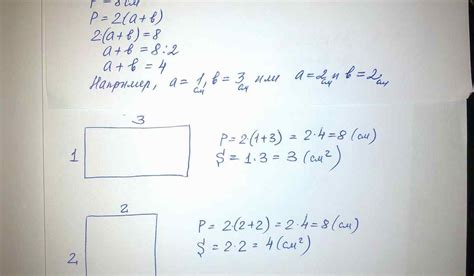 P = 8 см
P = 2(a+в)
2(a+в) = 8
a+в = 8:2
a+в = 4
Например, a = 1 см, в = 3 см или a = 2 см и в = 2 см
3
1
P = 2(1+3) = 2·4 = 8 (см)
S = 1·3 = 3 (см²)
2
2
P = 2(2+2) = 2·4 = 8 (см)
S = 2·2 = 4 (см²)